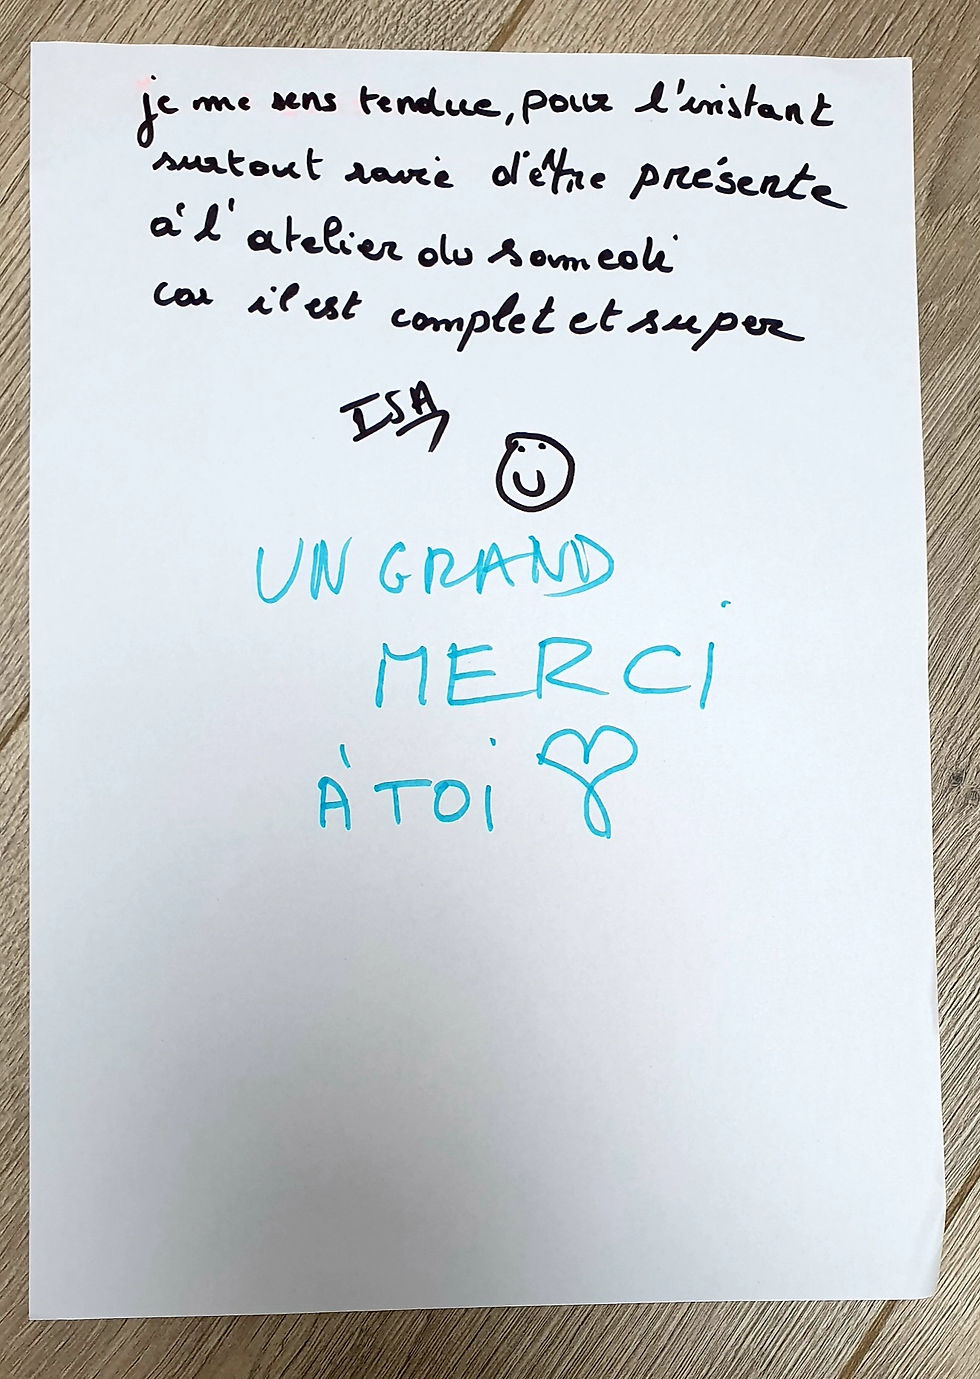 je me sens tendue, pour l'instant
surtout ravie d'être présente
à l'atelier du samedi
car il est complet et super
ISA
UN GRAND
MERCi
À TOi